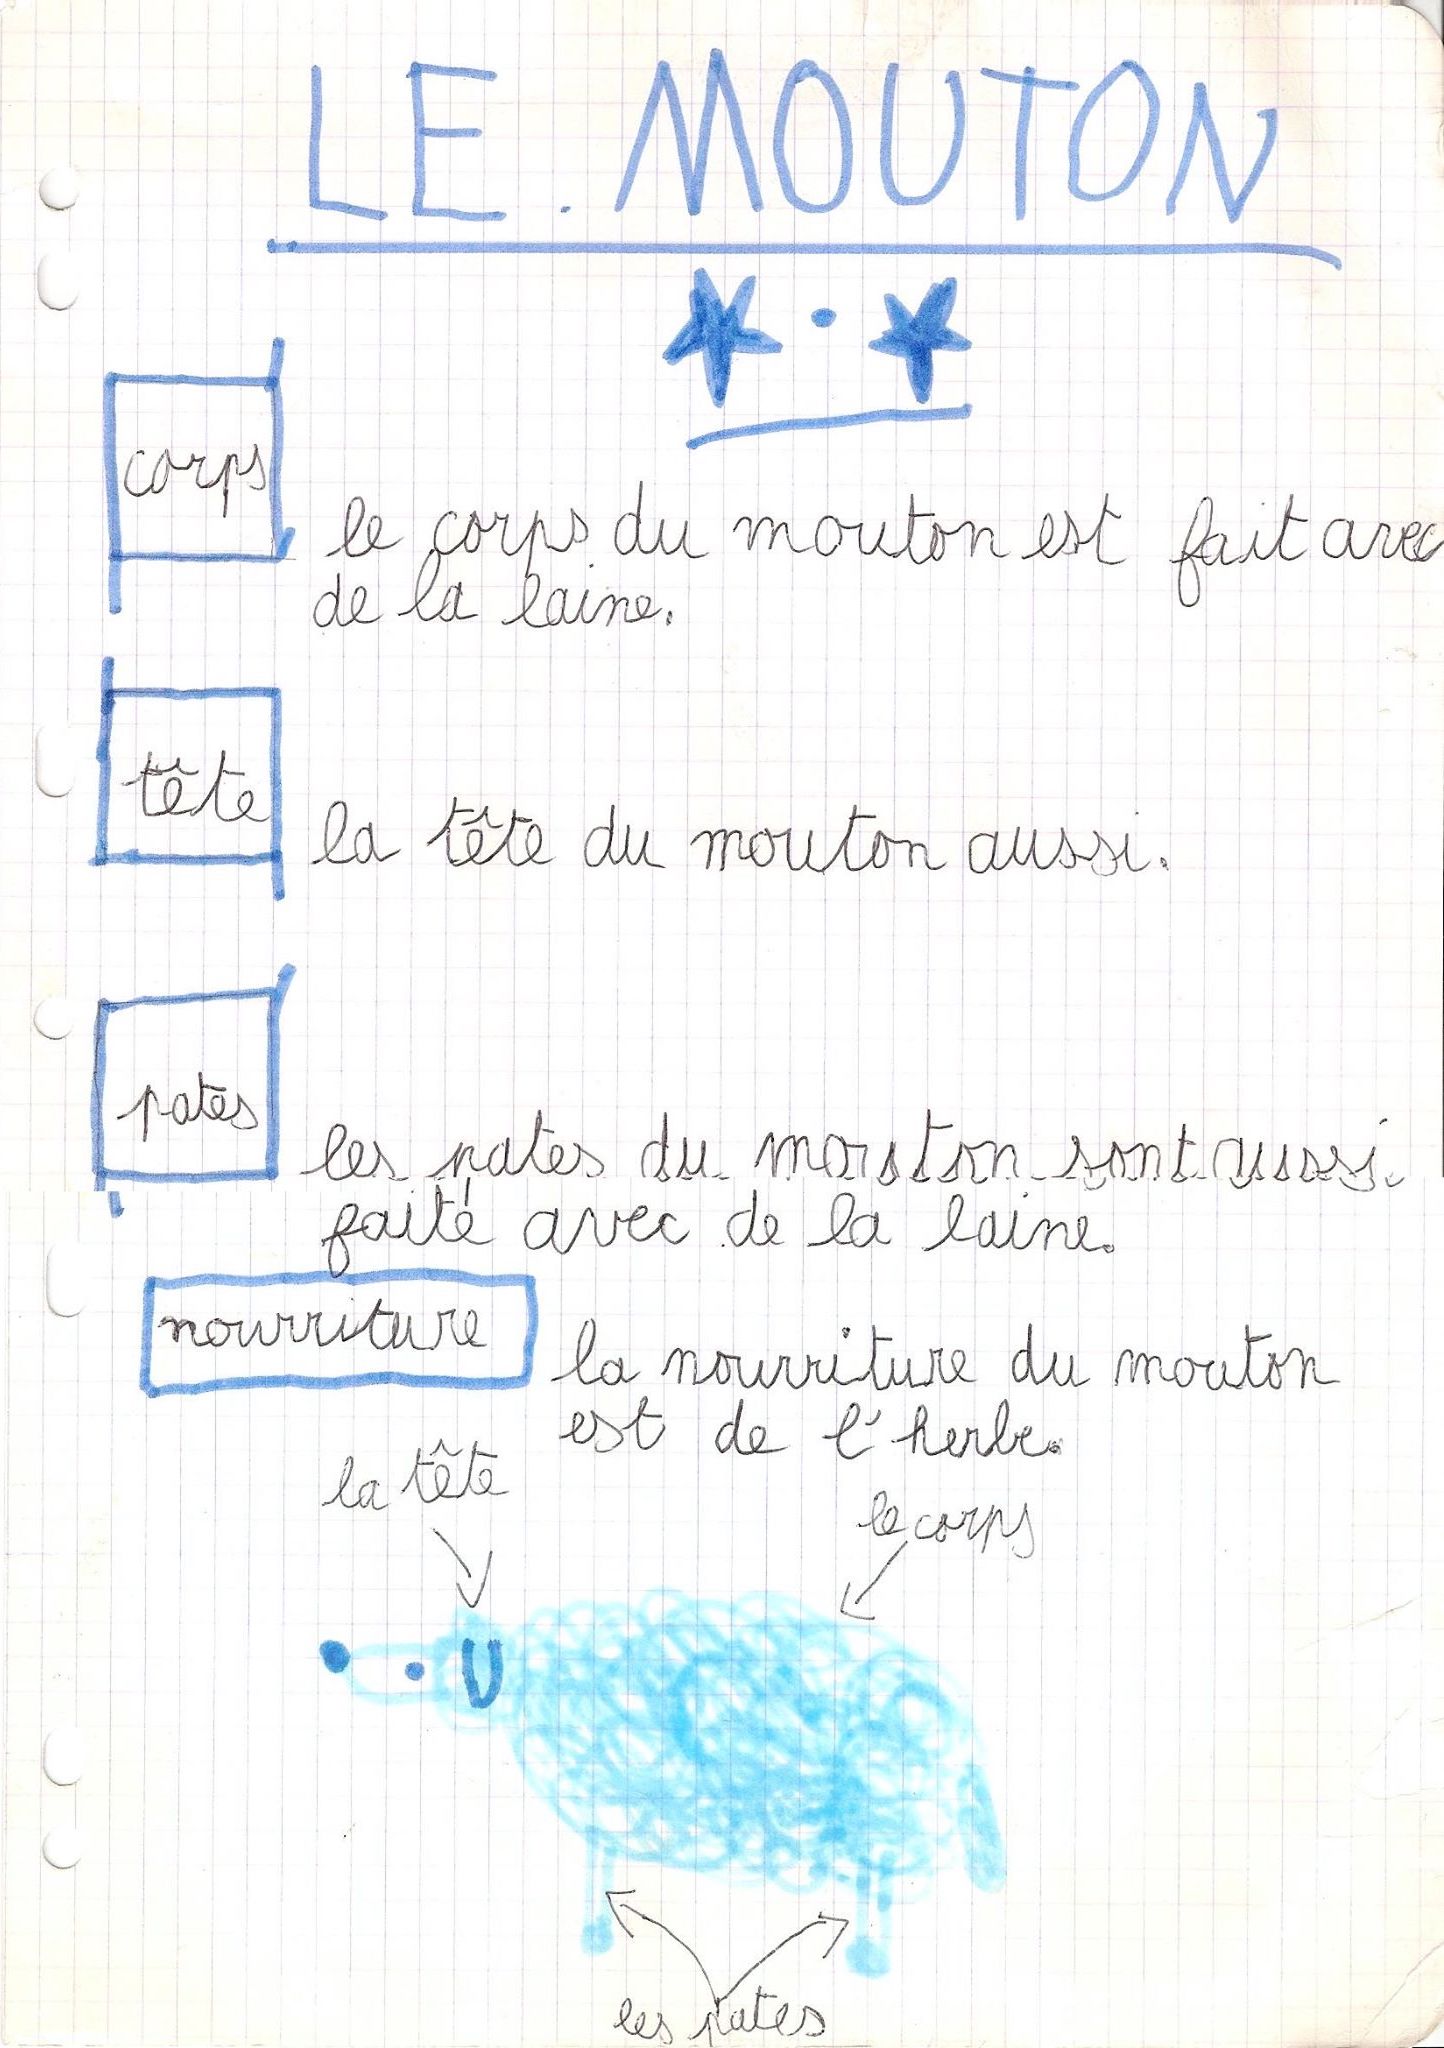 LE. MOUTON
corps
le corps du mouton est fait avec
de la laine.
tête
la tête du mouton aussi.
pates
les pates du mouton sont aussi
faité avec de la laine.
nourriture
la nourriture du mouton
est de l'herbe.
la tête
le corps
les pates